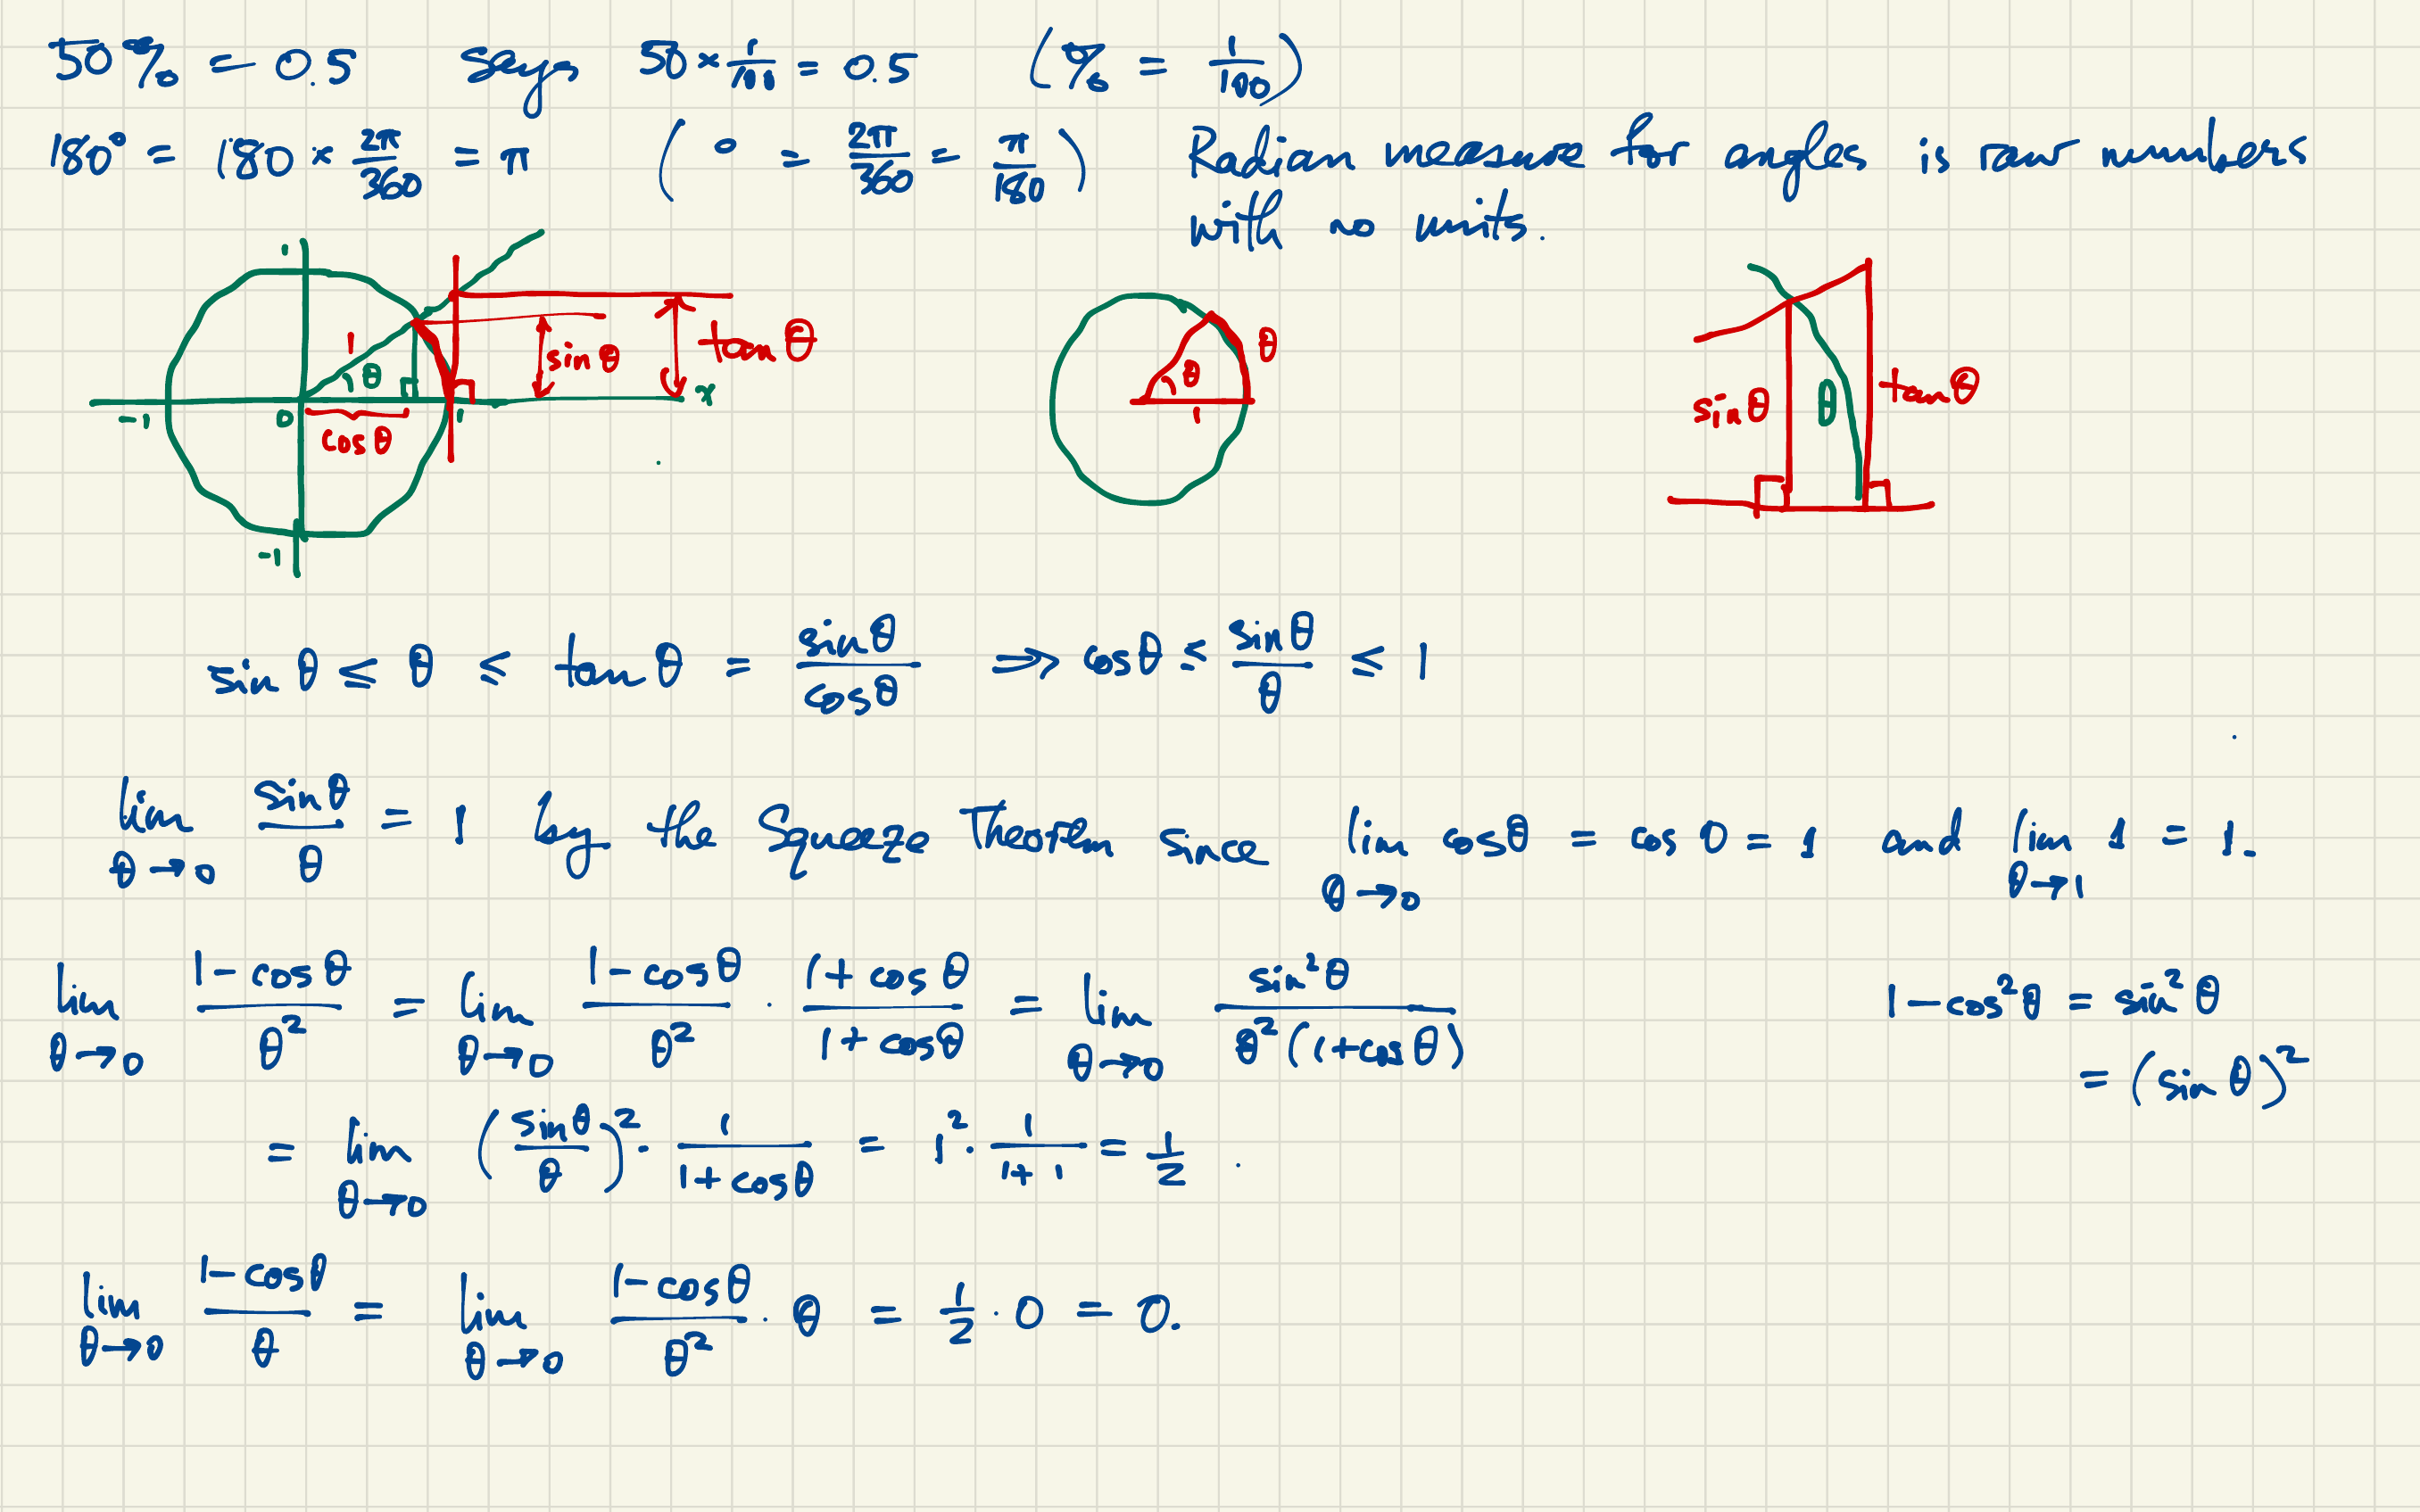 50% = 0.5 says 50 × 1/100 = 0.5 (% = 1/100)
180° = 180 × 2π/360 = π ( ° = 2π/360 = π/180 ) Radian measure for angles is raw numbers
with no units.
1
tan θ
1 sin θ θ
θ θ sin θ θ tan θ
-1 0 1 x 1
cos θ
-1
sin θ ≤ θ ≤ tan θ = sin θ/cos θ ⇒ cos θ ≤ sin θ/θ ≤ 1
lim θ→0 sin θ/θ = 1 by the Squeeze Theorem since lim θ→0 cos θ = cos 0 = 1 and lim θ→1 1 = 1.
lim θ→0 (1 - cos θ)/θ² = lim θ→0 (1 - cos θ)/θ² · (1 + cos θ)/(1 + cos θ) = lim θ→0 sin² θ/(θ² (1 + cos θ)) 1 - cos² θ = sin² θ
= (sin θ)²
= lim θ→0 (sin θ/θ)² · 1/(1 + cos θ) = 1² · 1/(1 + 1) = 1/2
lim θ→0 (1 - cos θ)/θ = lim θ→0 (1 - cos θ)/θ² · θ = 1/2 · 0 = 0.